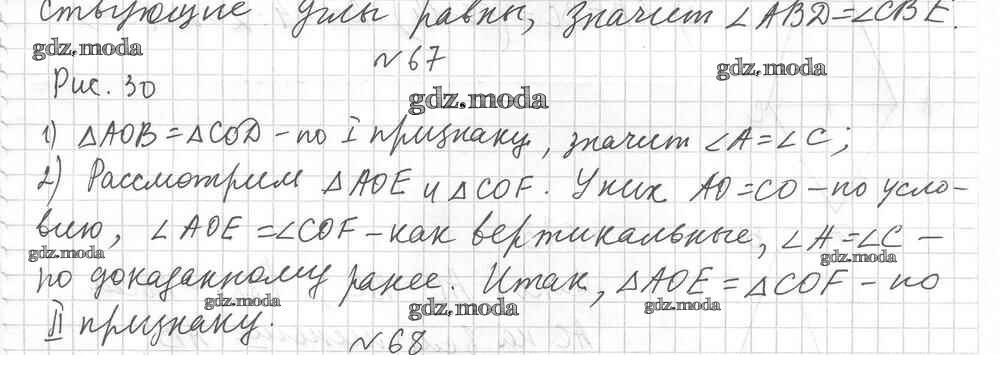 ствующие углы равны, значит ∠ABD=∠CBE.
gdz.moda
№67
gdz.moda
Рис. 30
gdz.moda
1) △AOB=△COD – по I признаку, значит ∠A=∠C;
2) Рассмотрим △AOE и △COF. У них AO=CO – по усло-
вию, ∠AOE=∠COF – как вертикальные, ∠A=∠C –
gdz.moda
gdz.moda
по доказанному ранее. Итак, △AOE=△COF – по
gdz.moda
gdz.moda
gdz.moda
II признаку.
№68